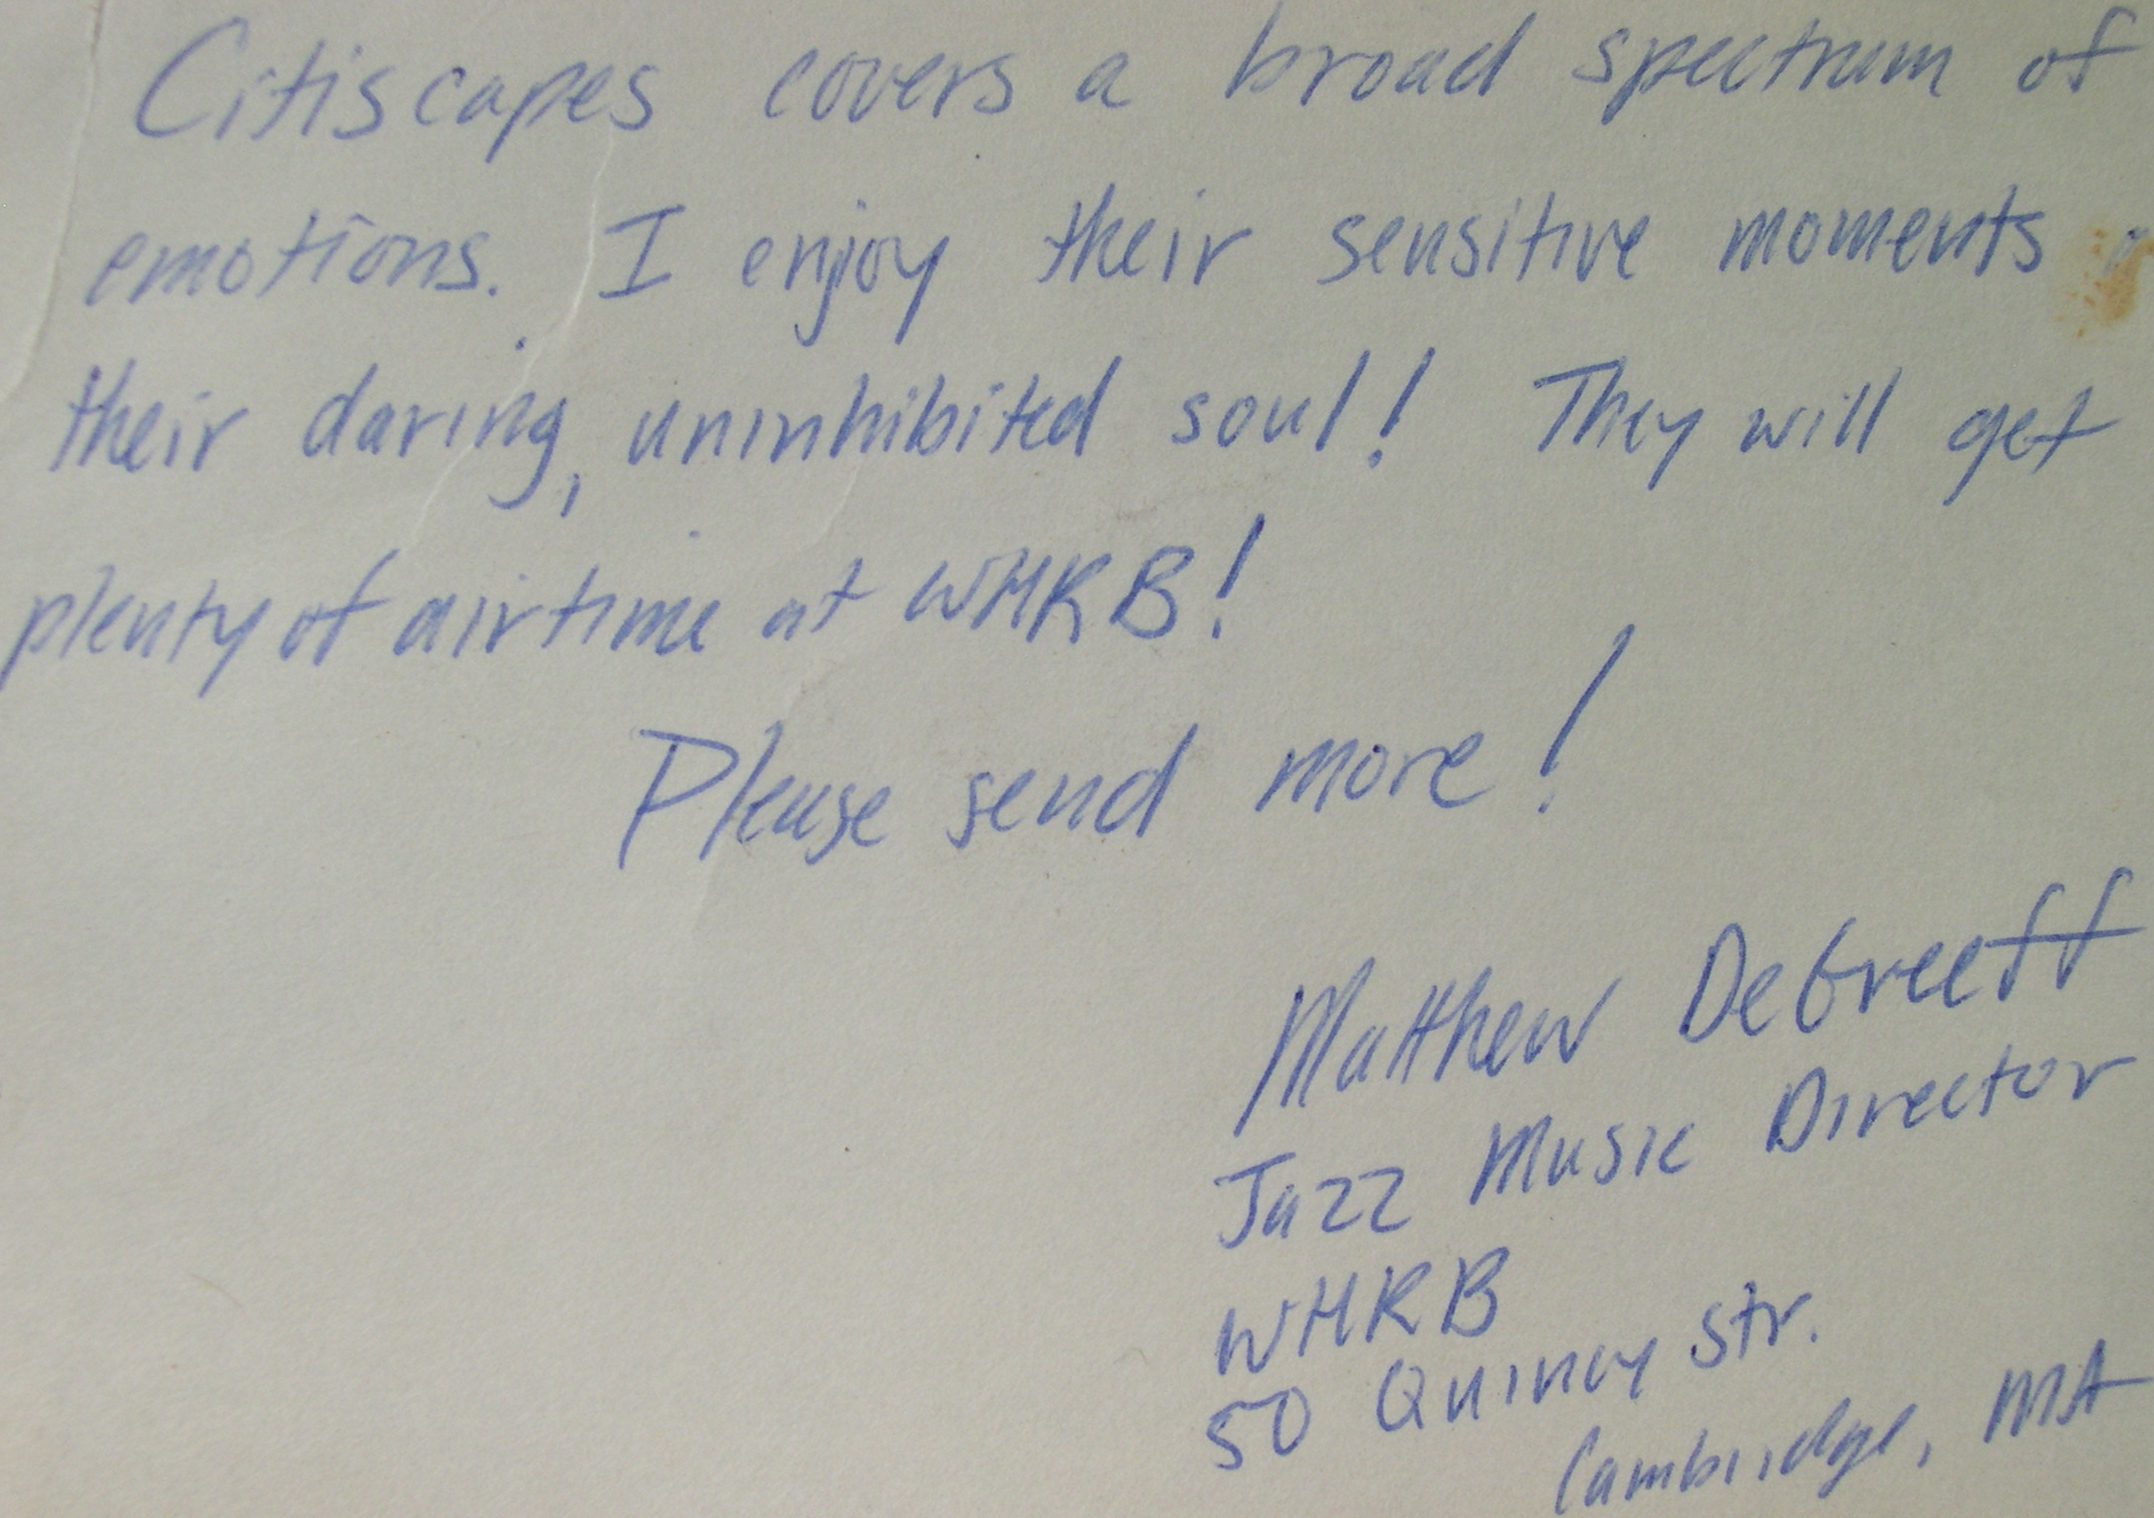 Citiscapes covers a broad spectrum of
emotions. I enjoy their sensitive moments
their daring, uninhibited soul! They will get
plenty of airtime at WHRB!
Please send more!
Matthew DeGreeff
Jazz Music Director
WHRB
50 Quincy Str.
Cambridge, MA